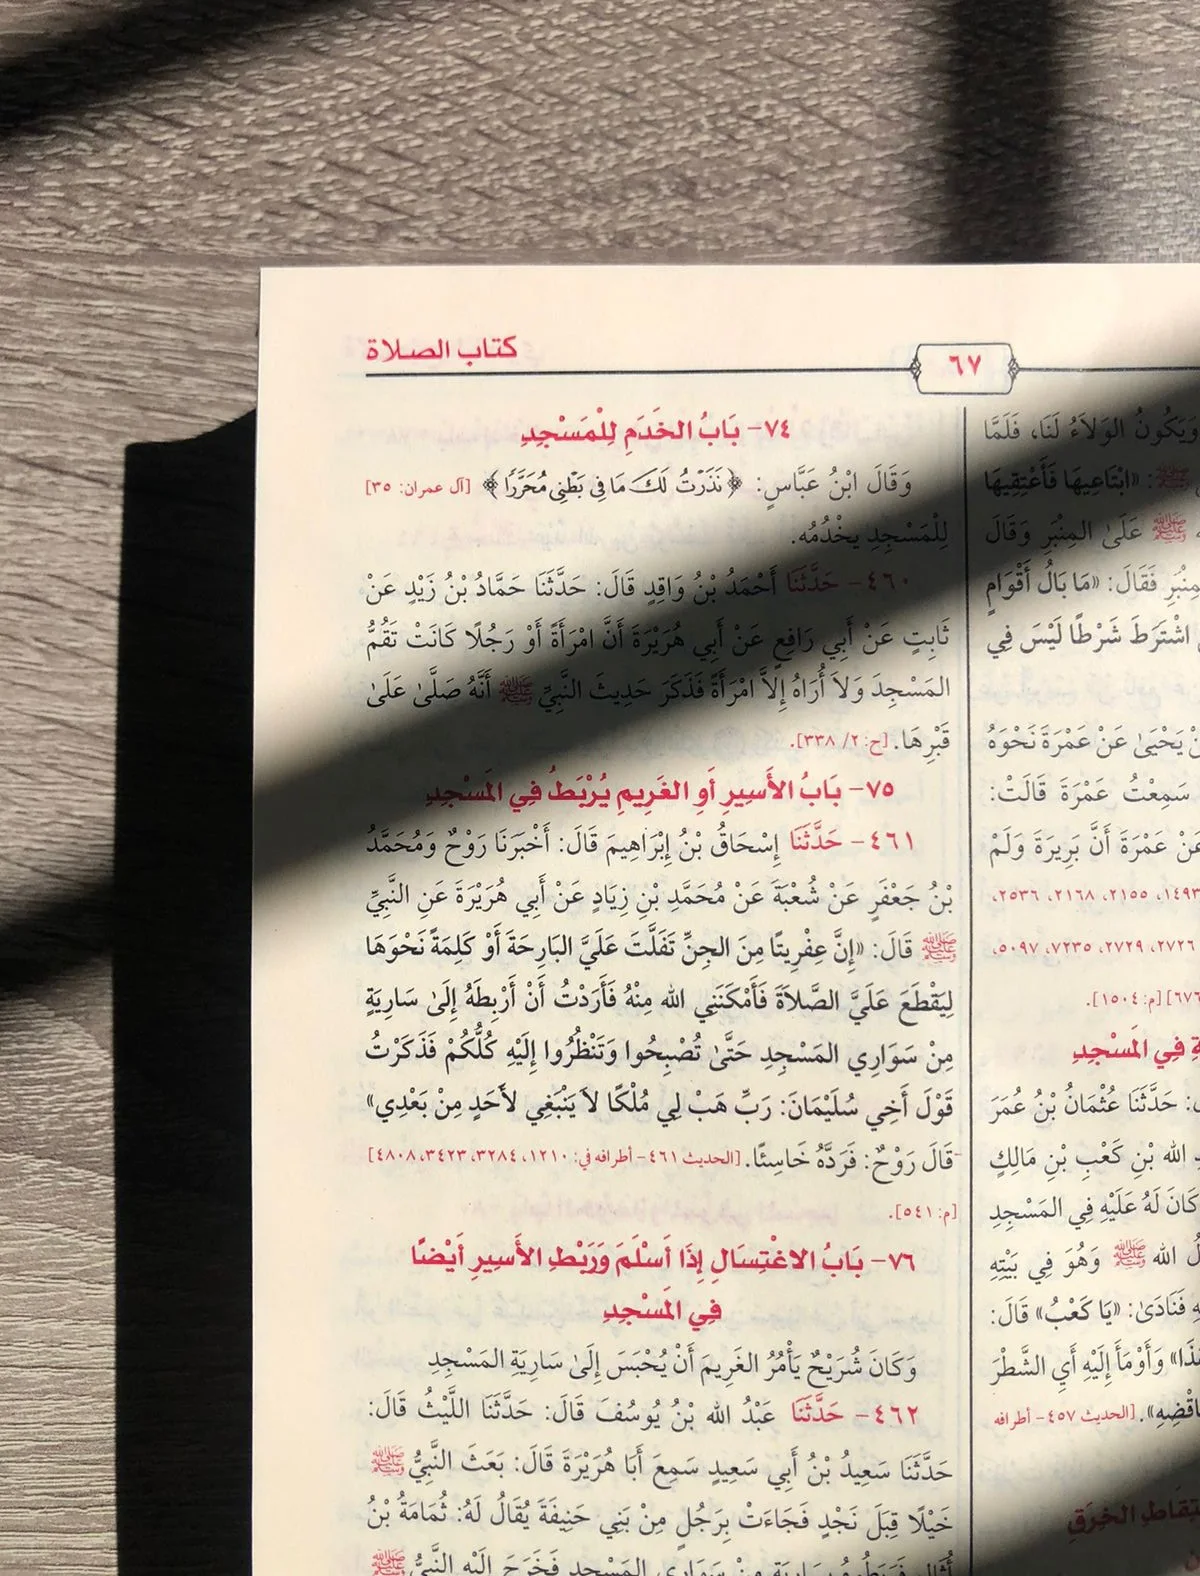 ٦٧
كتاب الصلاة
وَيَكُونُ الوَلاَءُ لَنَا، فَلَمَّا
ﷺ: «ابْتَاعِيهَا فَأَعْتِقِيهَا
ﷺ عَلَىٰ المِنْبَرِ وَقَالَ
فَقَالَ: «مَا بَالُ أَقْوَامٍ
اشْتَرَطَ شَرْطًا لَيْسَ فِي
يَحْيَىٰ عَنْ عَمْرَةَ نَحْوَهُ
سَمِعْتُ عَمْرَةَ قَالَتْ:
عَنْ عَمْرَةَ أَنَّ بَرِيرَةَ وَلَمْ
١٤٩٣، ٢١٥٥، ٢١٦٨، ٢٥٣٦،
٢٧٢٦، ٢٧٢٩، ٧٢٣٥، ٥٠٩٧،
[م: ١٥٠٤].
فِي المَسْجِدِ
حَدَّثَنَا عُثْمَانُ بْنُ عُمَرَ
الله بْنِ كَعْبِ بْنِ مَالِكٍ
كَانَ لَهُ عَلَيْهِ فِي المَسْجِدِ
الله ﷺ وَهُوَ فِي بَيْتِهِ
فَنَادَىٰ: «يَا كَعْبُ» قَالَ:
وَأَوْمَأَ إِلَيْهِ أَيِ الشَّطْرَ
[الحديث ٤٥٧- أطرافه
الخِرَقِ
٧٤- بَابُ الخَدَمِ لِلْمَسْجِدِ
وَقَالَ ابْنُ عَبَّاسٍ: ﴿نَذَرْتُ لَكَ مَا فِى بَطْنِى مُحَرَّرًا﴾ [آل عمران: ٣٥]
لِلْمَسْجِدِ يَخْدُمُه.
٤٦٠- حَدَّثَنَا أَحْمَدُ بْنُ وَاقِدٍ قَالَ: حَدَّثَنَا حَمَّادُ بْنُ زَيْدٍ عَنْ
ثَابِتٍ عَنْ أَبِي رَافِعٍ عَنْ أَبِي هُرَيْرَةَ أَنَّ امْرَأَةً أَوْ رَجُلًا كَانَتْ تَقُمُّ
المَسْجِدَ وَلاَ أُرَاهُ إِلاَّ امْرَأَةً فَذَكَرَ حَدِيثَ النَّبِيِّ ﷺ أَنَّهُ صَلَّىٰ عَلَىٰ
قَبْرِهَا. [ح: ٢/ ٣٣٨].
٧٥- بَابُ الأَسِيرِ أَوِ الغَرِيمِ يُرْبَطُ فِي المَسْجِدِ
٤٦١- حَدَّثَنَا إِسْحَاقُ بْنُ إِبْرَاهِيمَ قَالَ: أَخْبَرَنَا رَوْحٌ وَمُحَمَّدُ
بْنُ جَعْفَرٍ عَنْ شُعْبَةَ عَنْ مُحَمَّدِ بْنِ زِيَادٍ عَنْ أَبِي هُرَيْرَةَ عَنِ النَّبِيِّ
ﷺ قَالَ: «إِنَّ عِفْرِيتًا مِنَ الجِنِّ تَفَلَّتَ عَلَيَّ البَارِحَةَ أَوْ كَلِمَةً نَحْوَهَا
لِيَقْطَعَ عَلَيَّ الصَّلاَةَ فَأَمْكَنَنِي الله مِنْهُ فَأَرَدْتُ أَنْ أَرْبِطَهُ إِلَىٰ سَارِيَةٍ
مِنْ سَوَارِي المَسْجِدِ حَتَّىٰ تُصْبِحُوا وَتَنْظُرُوا إِلَيْهِ كُلُّكُمْ فَذَكَرْتُ
قَوْلَ أَخِي سُلَيْمَانَ: رَبِّ هَبْ لِي مُلْكًا لاَ يَنْبَغِي لأَحَدٍ مِنْ بَعْدِي»
قَالَ رَوْحٌ: فَرَدَّهُ خَاسِئًا. [الحديث ٤٦١- أطرافه في: ١٢١٠، ٣٢٨٤، ٣٤٢٣، ٤٨٠٨]
[م: ٥٤١].
٧٦- بَابُ الاغْتِسَالِ إِذَا أَسْلَمَ وَرَبْطِ الأَسِيرِ أَيْضًا
فِي المَسْجِدِ
وَكَانَ شُرَيْحٌ يَأْمُرُ الغَرِيمَ أَنْ يُحْبَسَ إِلَىٰ سَارِيَةِ المَسْجِدِ
٤٦٢- حَدَّثَنَا عَبْدُ الله بْنُ يُوسُفَ قَالَ: حَدَّثَنَا اللَّيْثُ قَالَ:
حَدَّثَنَا سَعِيدُ بْنُ أَبِي سَعِيدٍ سَمِعَ أَبَا هُرَيْرَةَ قَالَ: بَعَثَ النَّبِيُّ ﷺ
خَيْلًا قِبَلَ نَجْدٍ فَجَاءَتْ بِرَجُلٍ مِنْ بَنِي حَنِيفَةَ يُقَالُ لَهُ: ثُمَامَةُ بْنُ
أُثَالٍ فَرَبَطُوهُ بِسَارِيَةٍ مِنْ سَوَارِي المَسْجِدِ فَخَرَجَ إِلَيْهِ النَّبِيُّ ﷺ